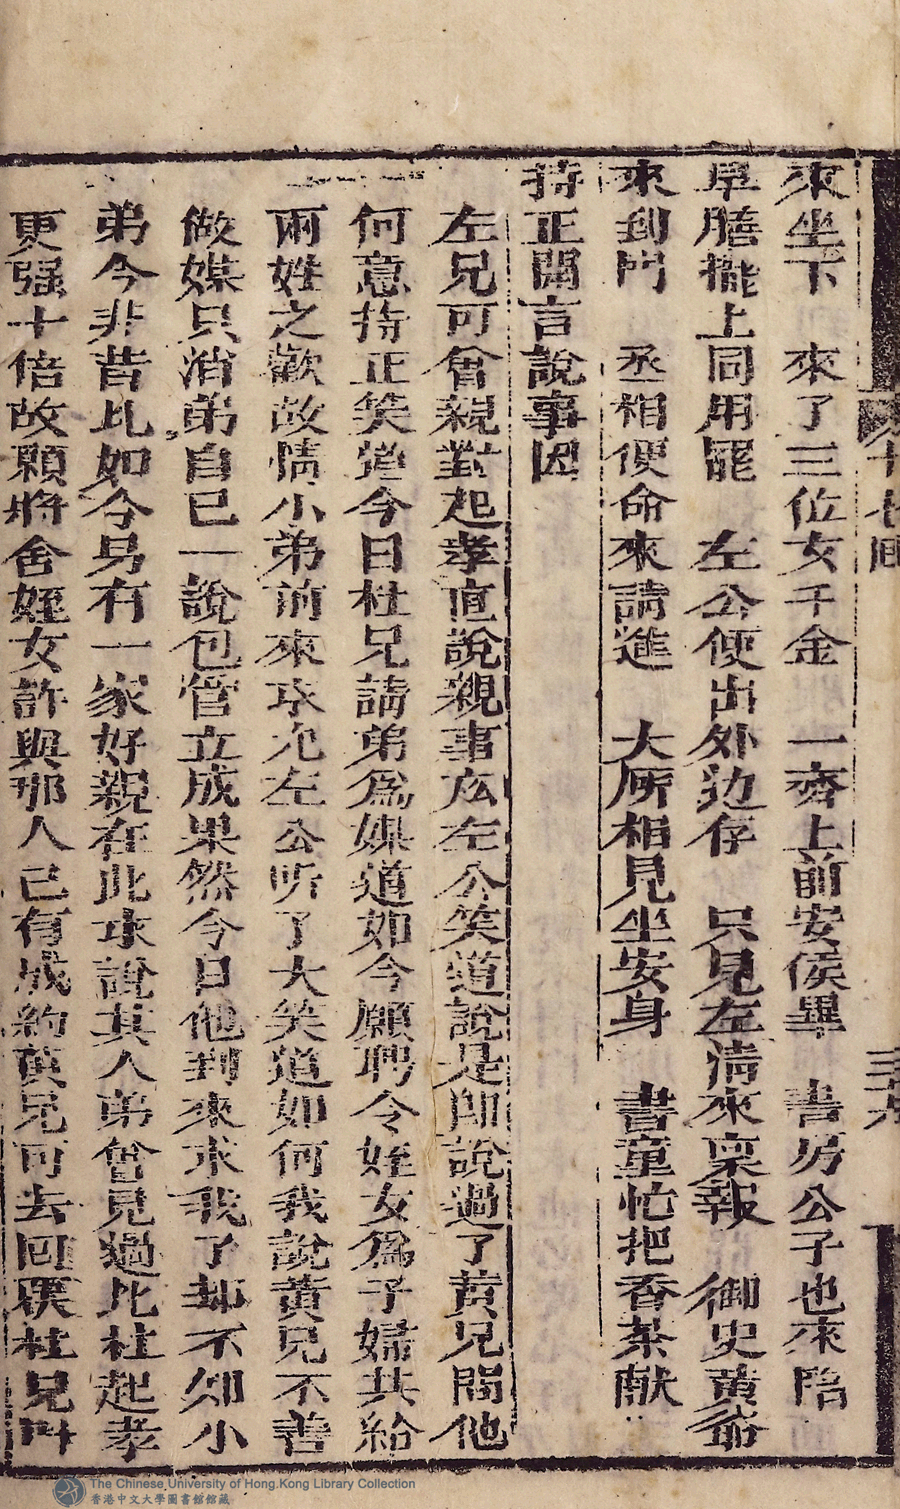 十七回
三十九
來坐下 來了三位女千金 一齊上前安侯畢 書房公子也來陪
早膳擺上同用罷 左公便出外边存 只見左清來稟報 御史黄爺
來到門 丞相便命來請進 大所相見坐安身 書童忙把香茶献
持正開言說事因
左兄可會親對起孝直說親事広左公笑道說是即說過了黄兄問他
何意持正笑道今日杜兄請弟爲媒道如今願聘令姪女爲子婦共給
兩姓之歡故情小弟前來求允左公听了大笑道如何我說黄兄不善
做媒只消弟自已一說包管立成果然今日他到來求我了却不知小
弟今非昔比如今另有一家好親在此求說其人弟曾見過比杜起孝
更强十倍故願將舍姪女許與那人已有成約黄兄可去回覆杜兄叫
The Chinese University of Hong Kong Library Collection
香港中文大學圖書館館藏